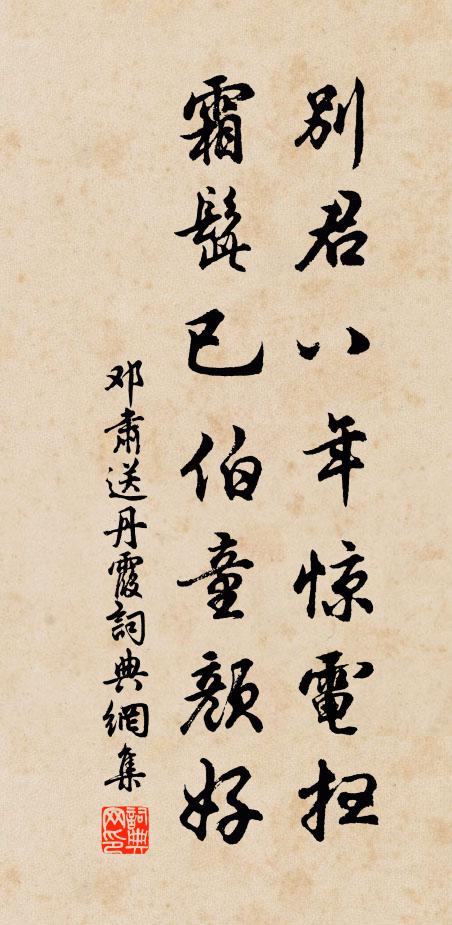 别君八年惊電扫
霜髭已伯童顔好
邓肅送丹霞詞典網集
詞典网印